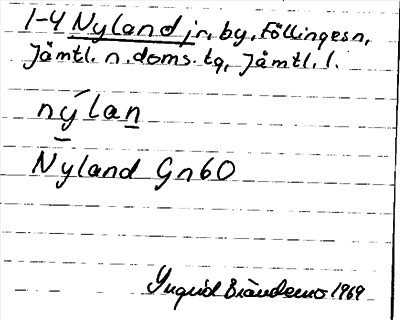 1-4 Nyland jr, by, Föllinge sn,
Jämtl. n. doms. tg, Jämtl. l.
nýlan
Nyland Gn 60
Yngvid Brändemo 1969